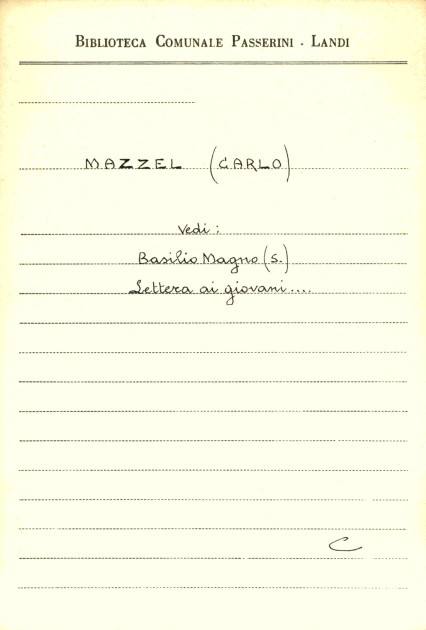 BIBLIOTECA COMUNALE PASSERINI - LANDI
MAZZEL (CARLO)
Vedi:
Basilio Magno (S.)
Lettera ai giovani....
C